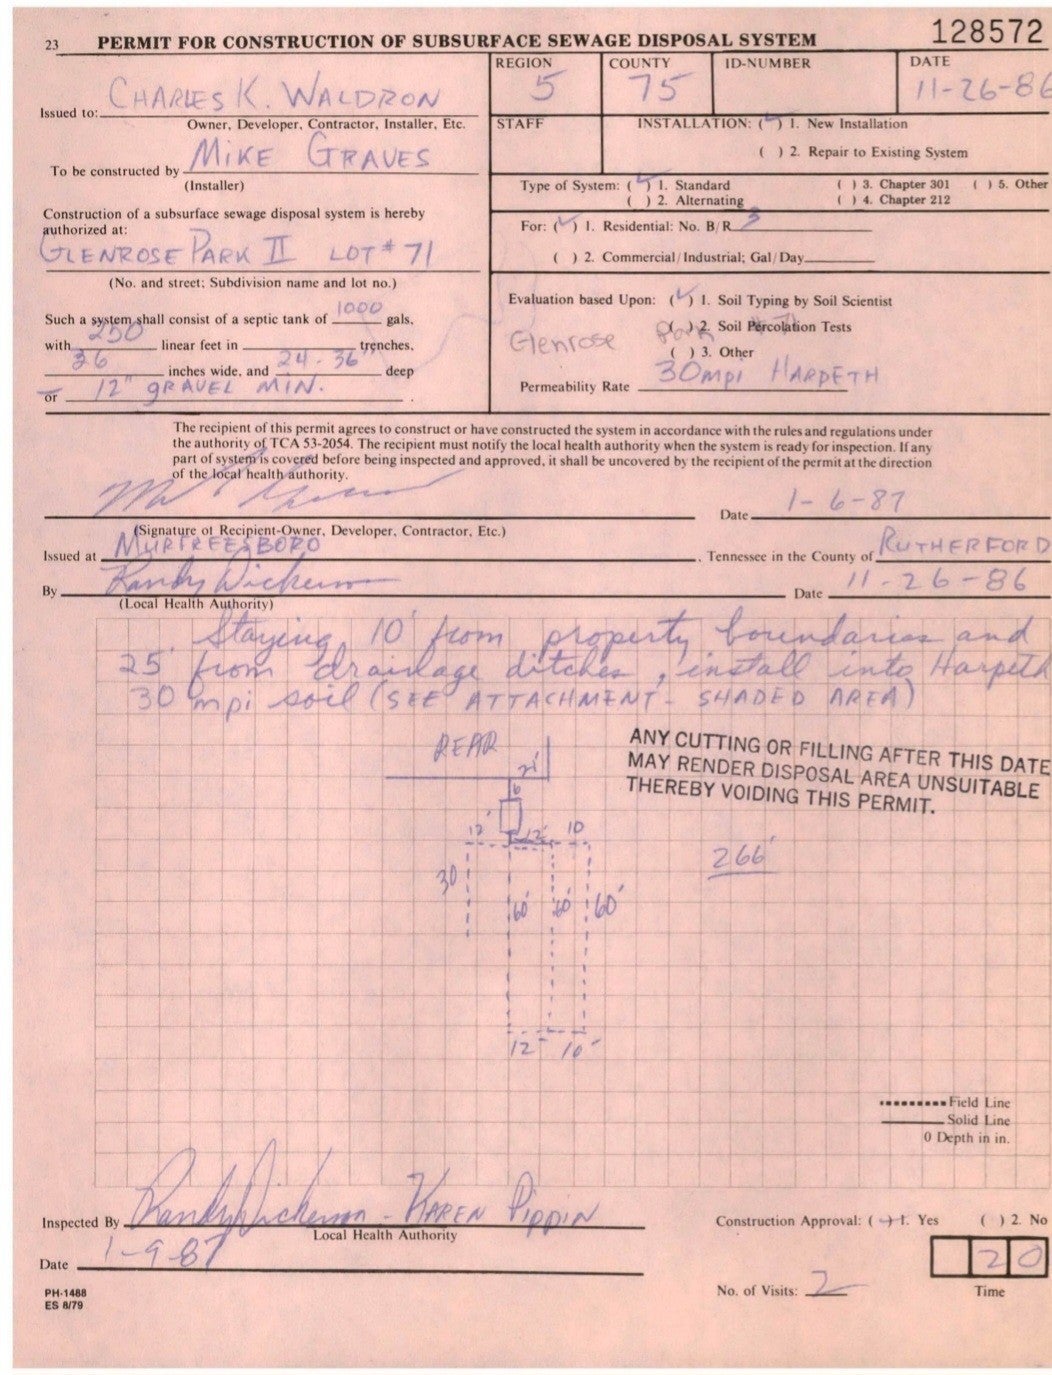 23 PERMIT FOR CONSTRUCTION OF SUBSURFACE SEWAGE DISPOSAL SYSTEM 128572
REGION 5
COUNTY 75
ID-NUMBER
DATE 11-26-86
Issued to: CHARLES K. WALDRON
Owner, Developer, Contractor, Installer, Etc.
To be constructed by MIKE GRAVES
(Installer)
STAFF
INSTALLATION: (✓) 1. New Installation
( ) 2. Repair to Existing System
Type of System: (✓) 1. Standard ( ) 3. Chapter 301 ( ) 5. Other
( ) 2. Alternating ( ) 4. Chapter 212
Construction of a subsurface sewage disposal system is hereby
authorized at:
GLENROSE PARK II LOT # 71
(No. and street; Subdivision name and lot no.)
For: (✓) 1. Residential: No. B/R 3
( ) 2. Commercial/Industrial; Gal/Day
Such a system shall consist of a septic tank of 1000 gals,
with 250 linear feet in trenches,
36 inches wide, and 24-36" deep
or 12" GRAVEL MIN.
Evaluation based Upon: (✓) 1. Soil Typing by Soil Scientist
( ) 2. Soil Percolation Tests
Glenrose Park
( ) 3. Other
Permeability Rate 30mpi HARPETH
The recipient of this permit agrees to construct or have constructed the system in accordance with the rules and regulations under
the authority of TCA 53-2054. The recipient must notify the local health authority when the system is ready for inspection. If any
part of system is covered before being inspected and approved, it shall be uncovered by the recipient of the permit at the direction
of the local health authority.
Date 1-6-87
(Signature of Recipient-Owner, Developer, Contractor, Etc.)
Issued at MURFREESBORO, Tennessee in the County of RUTHERFORD
By Randy Dickerson Date 11-26-86
(Local Health Authority)
Staying 10' from property boundaries and
25' from drainage ditches, install into Harpeth
30 mpi soil (SEE ATTACHMENT - SHADED AREA)
REAR
ANY CUTTING OR FILLING AFTER THIS DATE
MAY RENDER DISPOSAL AREA UNSUITABLE
THEREBY VOIDING THIS PERMIT.
21'
6
12' 12' 10
266'
30
60' 60' 60'
12' 10'
Field Line
Solid Line
0 Depth in in.
Inspected By Randy Dickerson - KAREN PIPPIN
Local Health Authority
Construction Approval: (✓) 1. Yes ( ) 2. No
Date 1-9-87
20
Time
No. of Visits: 2
PH-1488
ES 8/79